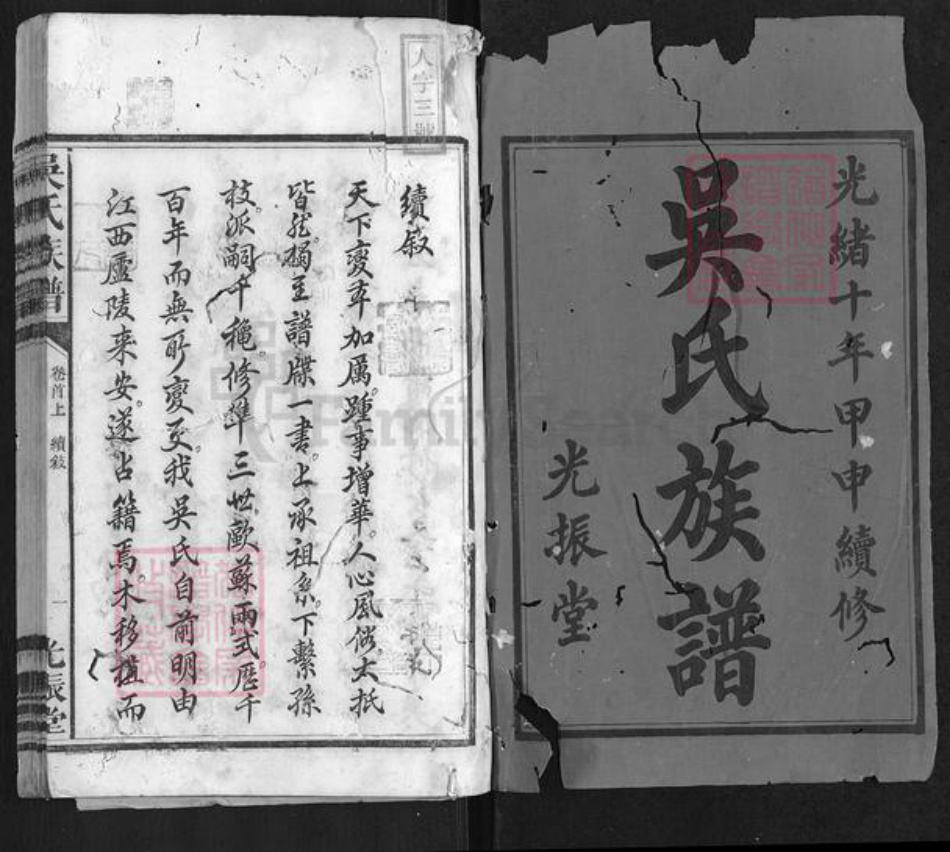 光緒十年甲申續修
吳氏族譜
光振堂
人字三號
續敘
天下變率加厲踵事增華人心風俗大抵
皆然獨至譜牒一書上承祖系下繫孫
枝派嗣千穐修準三世歐蘇兩式歷千
百年而無所變更我吳氏自前明由
江西廬陵來安遂占籍焉木移植而
吳氏族譜
卷首上 續敘
一
光振堂
FamilySearch